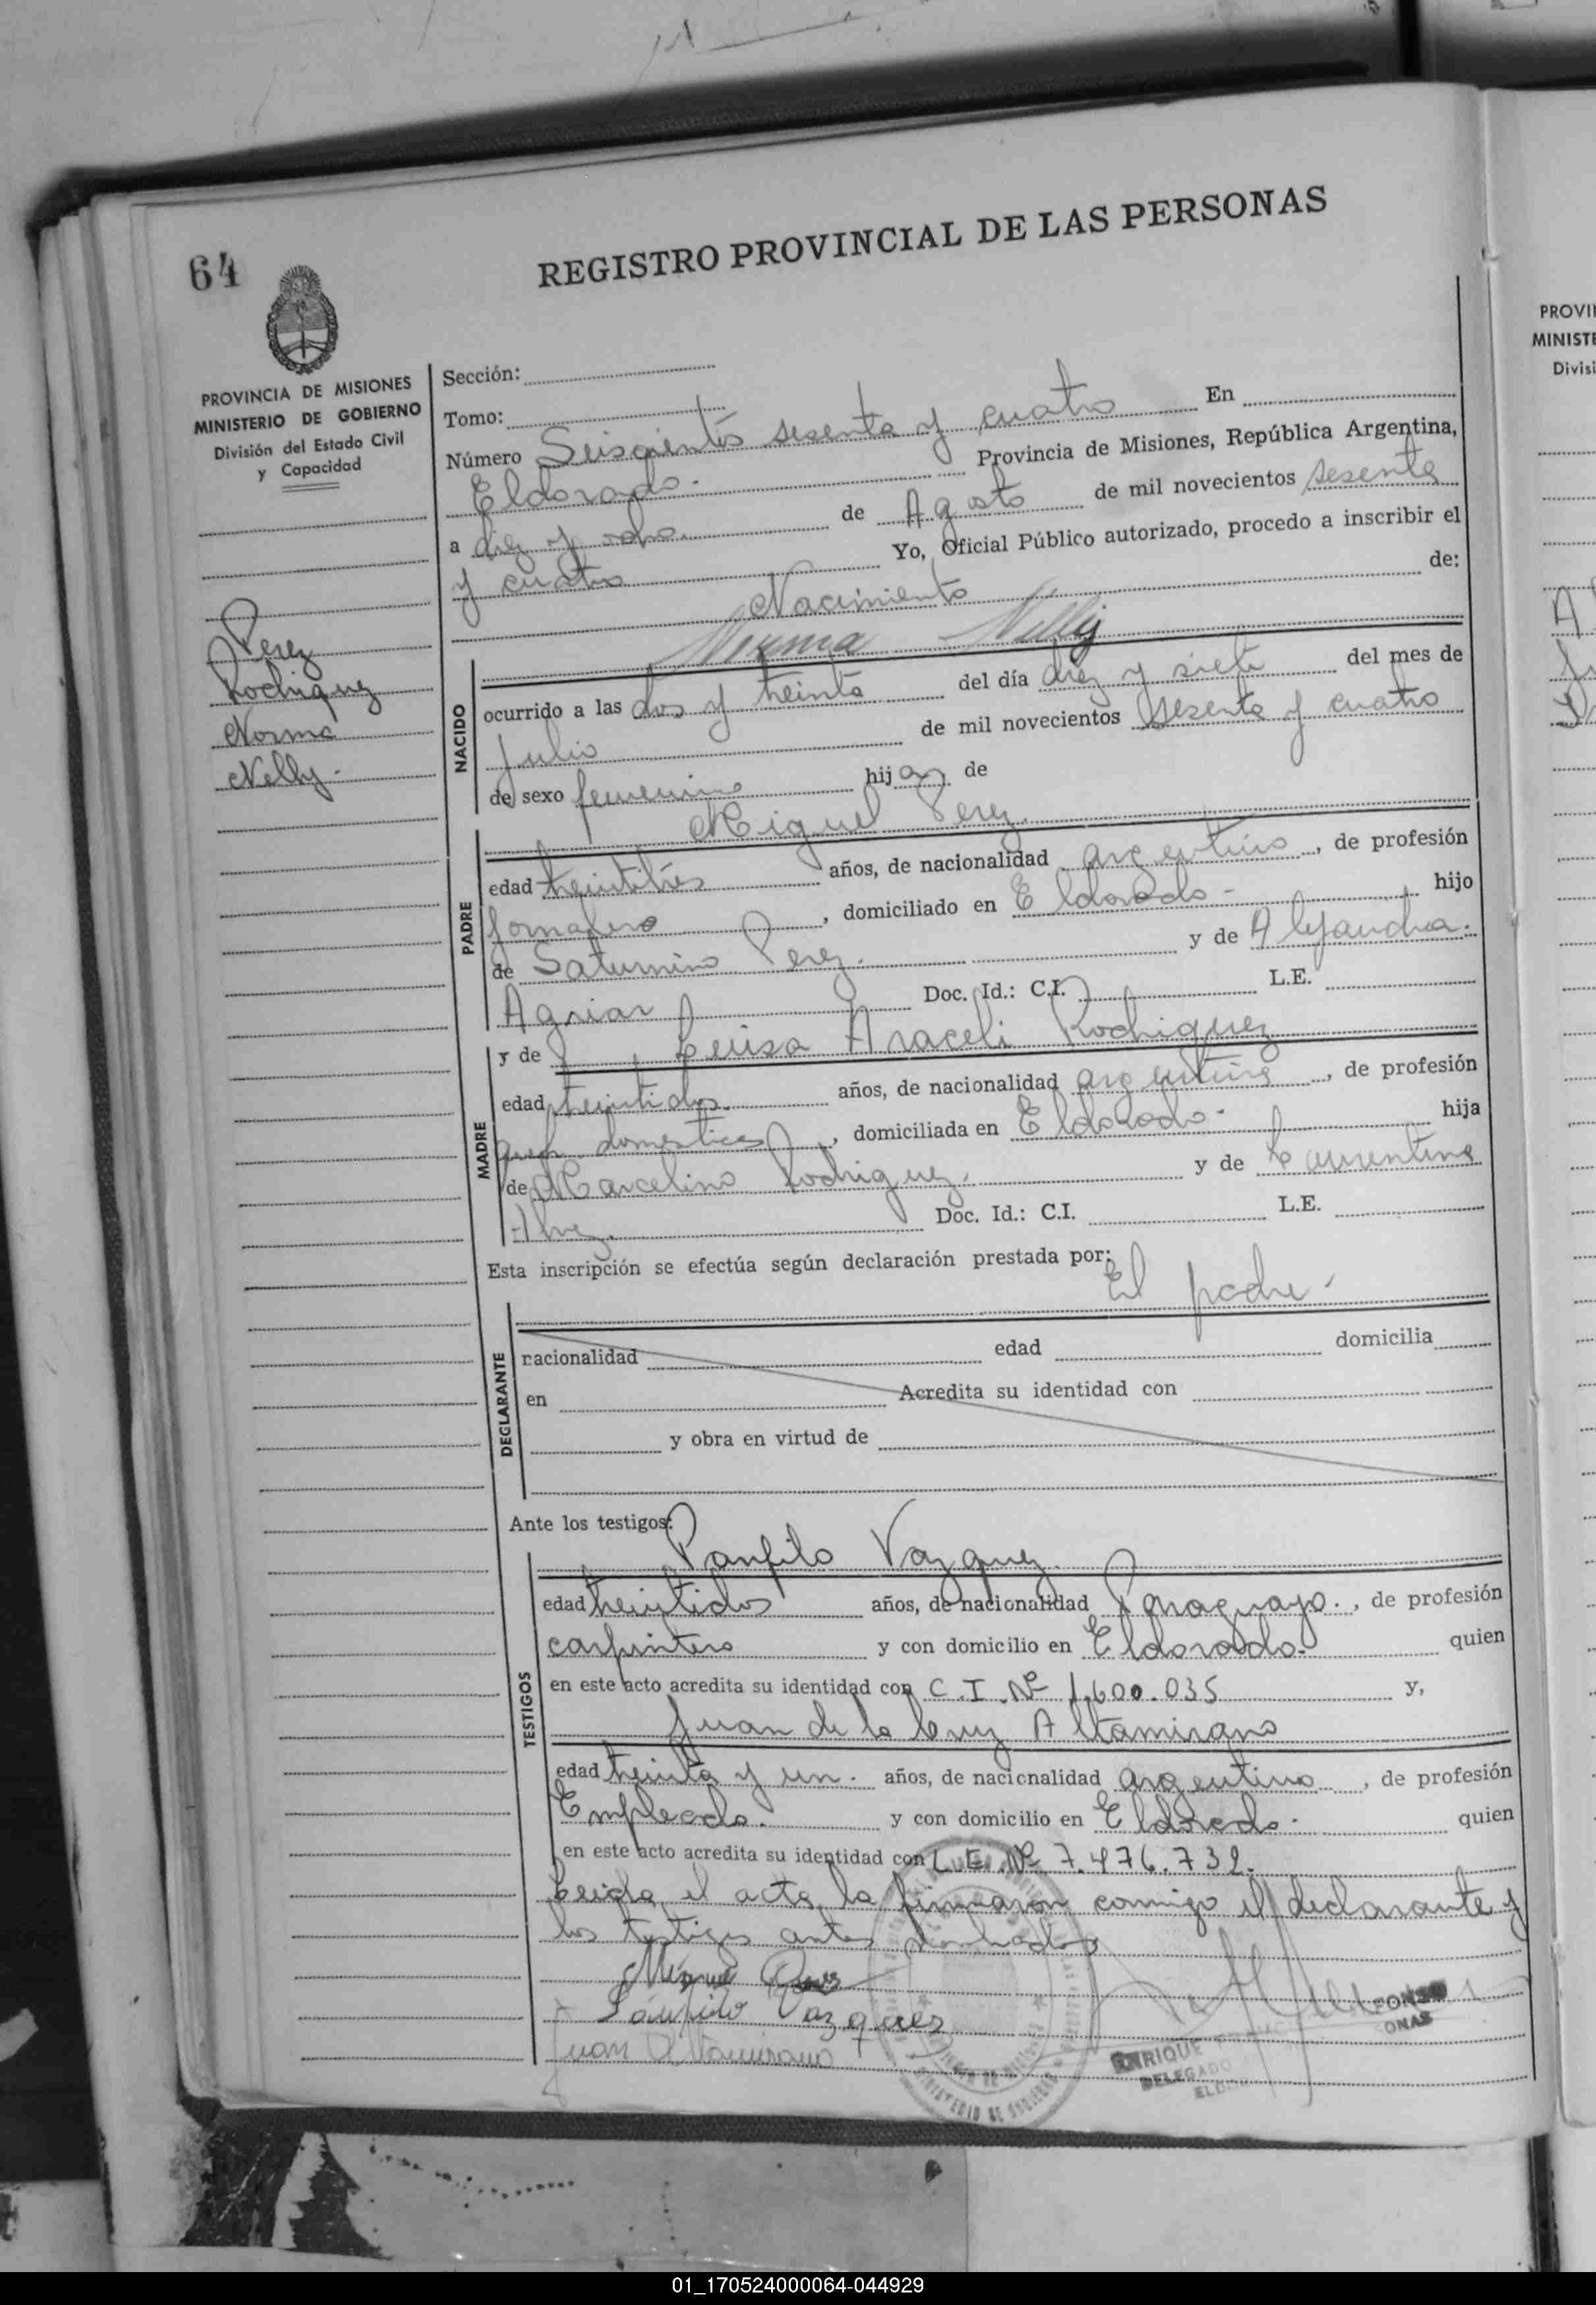 64
REGISTRO PROVINCIAL DE LAS PERSONAS
PROVINCIA DE MISIONES
MINISTERIO DE GOBIERNO
División del Estado Civil
y Capacidad
Perez
Rodriguez
Norma
Nelly.
Sección:
Tomo:
Número Seiscientos sesenta y cuatro En
Eldorado. Provincia de Misiones, República Argentina,
a diez y ocho. de Agosto de mil novecientos sesenta
y cuatro Yo, Oficial Público autorizado, procedo a inscribir el
Nacimiento de:
Norma Nelly
NACIDO
ocurrido a las dos y treinta del día diez y siete del mes de
Julio de mil novecientos sesenta y cuatro
de sexo femenino hija de
Miguel Perez.
PADRE
edad treintitrés años, de nacionalidad argentino, de profesión
jornalero, domiciliado en Eldorado - hijo
de Saturnino Perez. y de Alejandra.
Doc. Id.: C.I. L.E.
y de Luisa Araceli Rodriguez
MADRE
edad treintidos. años, de nacionalidad argentina, de profesión
queh. domesticos, domiciliada en Eldorado - hija
de Marcelino Rodriguez. y de Laurentina
Doc. Id.: C.I. L.E.
Esta inscripción se efectúa según declaración prestada por:
El padre -
DECLARANTE
nacionalidad edad domicilia
en Acredita su identidad con
y obra en virtud de
Ante los testigos:
Panfilo Vazquez.
TESTIGOS
edad treintidos años, de nacionalidad Paraguayo., de profesión
carpintero y con domicilio en Eldorado. quien
en este acto acredita su identidad con C.I. Nº 1.600.035 y,
Juan de la Cruz Altamirano
edad treinta y un. años, de nacionalidad argentino, de profesión
Empleado. y con domicilio en Eldorado. quien
en este acto acredita su identidad con L.E. Nº 7.476.732.
Leida el acta, la firmaron conmigo el declarante y
los testigos antes nombrados
Miguel Perez
Pánfilo Vazquez
Juan Altamirano
ENRIQUE
DELEGADO
PROVIN
MINISTE
Divisi
01_170524000064-044929